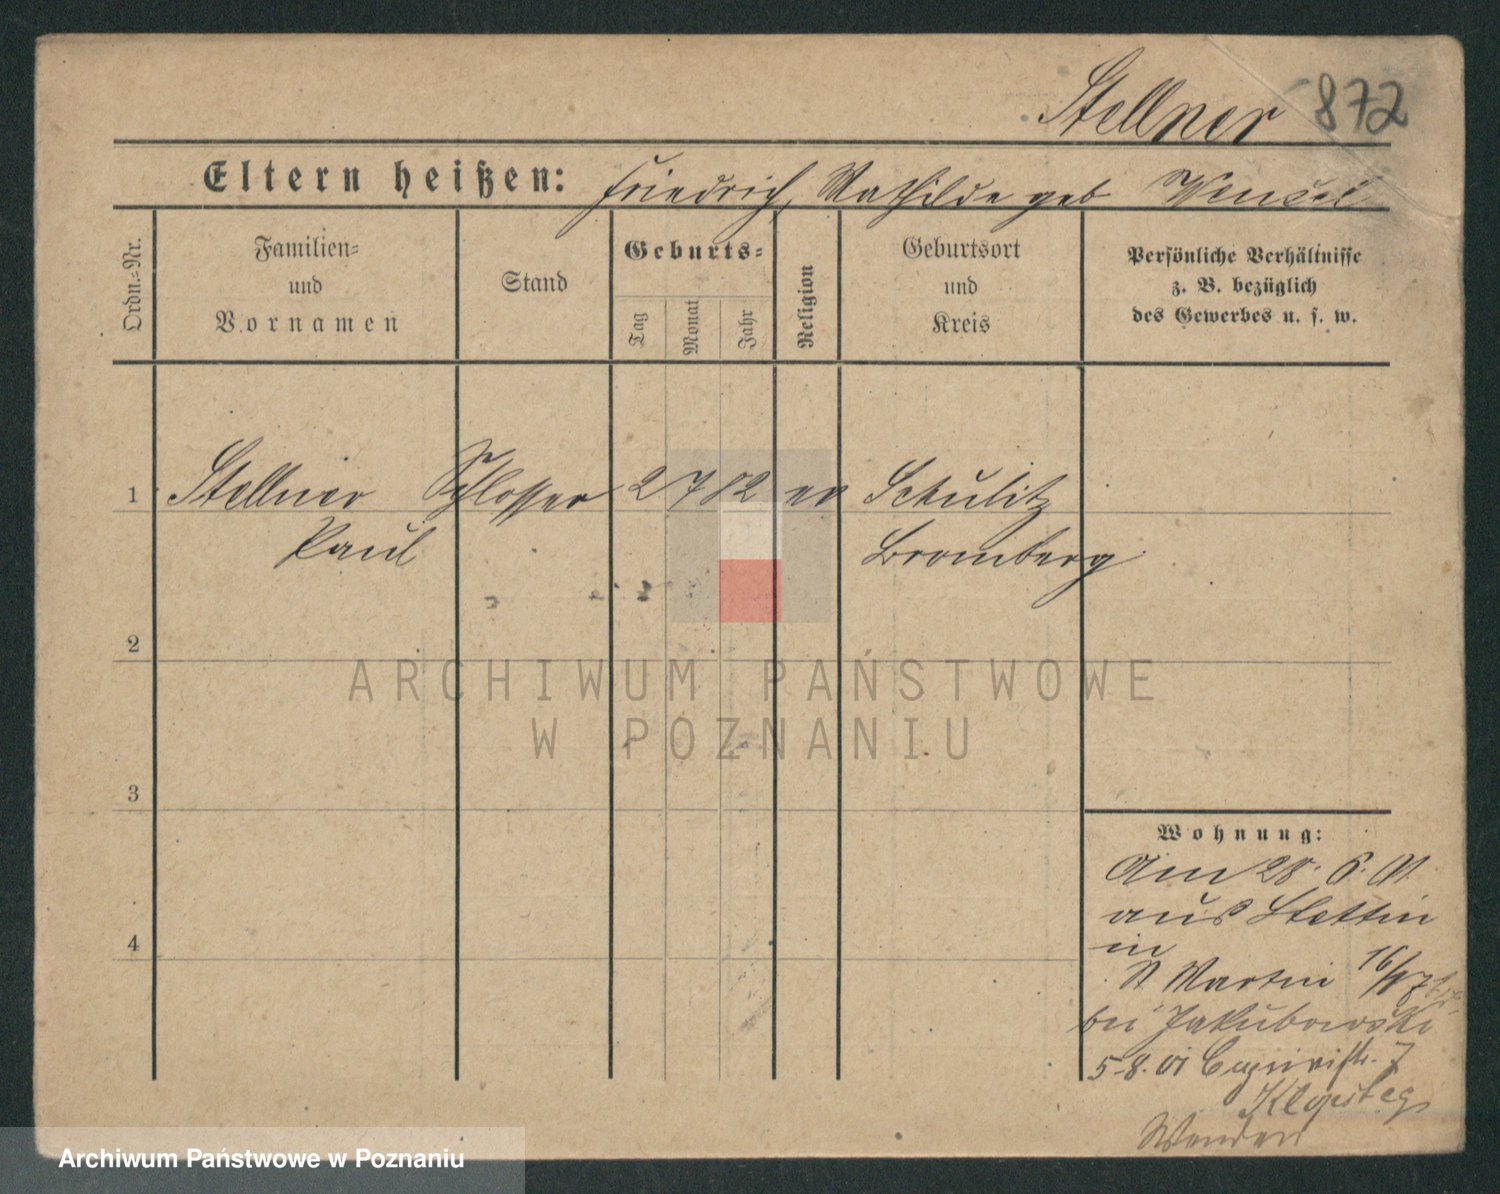 Stellner 872
Eltern heißen: Friedrich, Mathilde geb Wensel
Ordn.-Nr.
Familien-
und
Vornamen
Stand
Geburts-
Tag
Monat
Jahr
Religion
Geburtsort
und
Kreis
Persönliche Verhältnisse
z. B. bezüglich
des Gewerbes u. s. w.
1 Stellner Schlosser 2 7 82 ev Schulitz
Paul Bromberg
2
ARCHIWUM PAŃSTWOWE
W POZNANIU
3
4
Wohnung:
Am 28. 6. 01
aus Stettin
in
St Martin 16/17
bei Jakubowski
5-8. 01 7
Archiwum Państwowe w Poznaniu